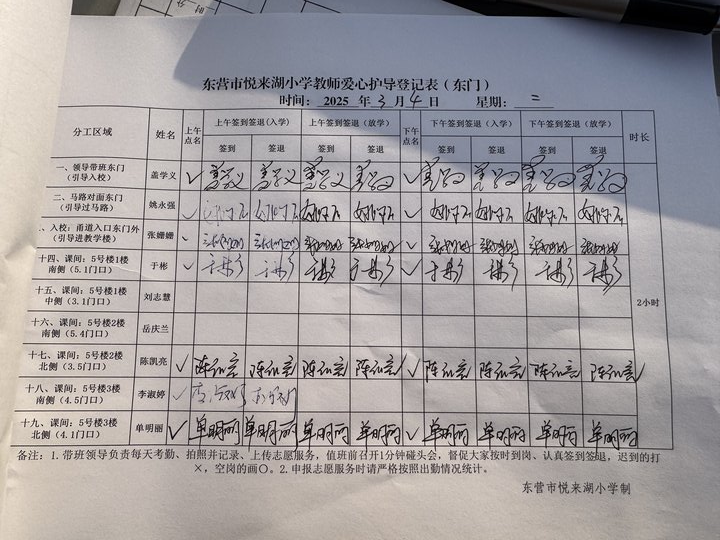 东营市悦来湖小学教师爱心护导登记表（东门）
时间： 2025 年 3 月 4 日 星期： 二
分工区域 姓名 上午点名 上午签到签退(入学) 上午签到签退（放学） 下午点名 下午签到签退（入学） 下午签到签退（放学） 时长
签到 签退 签到 签退 签到 签退 签到 签退
一、领导带班东门
（引导入校） 盖学义 ✓ 盖学义 盖学义 盖学义 盖学义 ✓ 盖学义 盖学义 盖学义 盖学义
二、马路对面东门
（引导过马路） 姚永强 ✓ 姚永强 姚永强 姚永强 姚永强 ✓ 姚永强 姚永强 姚永强 姚永强
、入校：甬道入口东门外
（引导进教学楼） 张姗姗 ✓ 张姗姗 张姗姗 张姗姗 张姗姗 ✓ 张姗姗 张姗姗 张姗姗 张姗姗
十四、课间：5号楼1楼
南侧（5.1门口） 于彬 ✓ 于彬 于彬 于彬 于彬 ✓ 于彬 于彬 于彬 于彬
十五、课间：5号楼1楼
中侧（3.1门口） 刘志慧
2小时
十六、课间：5号楼2楼
南侧（5.4门口） 岳庆兰
十七、课间：5号楼2楼
北侧（3.5门口） 陈凯亮 ✓ 陈凯亮 陈凯亮 陈凯亮 陈凯亮 ✓ 陈凯亮 陈凯亮 陈凯亮 陈凯亮
十八、课间：5号楼3楼
南侧（4.5门口） 李淑婷 ✓
十九、课间：5号楼3楼
北侧（4.1门口） 单明丽 ✓ 单明丽 单明丽 单明丽 单明丽 ✓ 单明丽 单明丽 单明丽 单明丽
备注：1.带班领导负责每天考勤、拍照并记录、上传志愿服务，值班前召开1分钟碰头会，督促大家按时到岗、认真签到签退，迟到的打
×，空岗的画〇。2.申报志愿服务时请严格按照出勤情况统计。
东营市悦来湖小学制